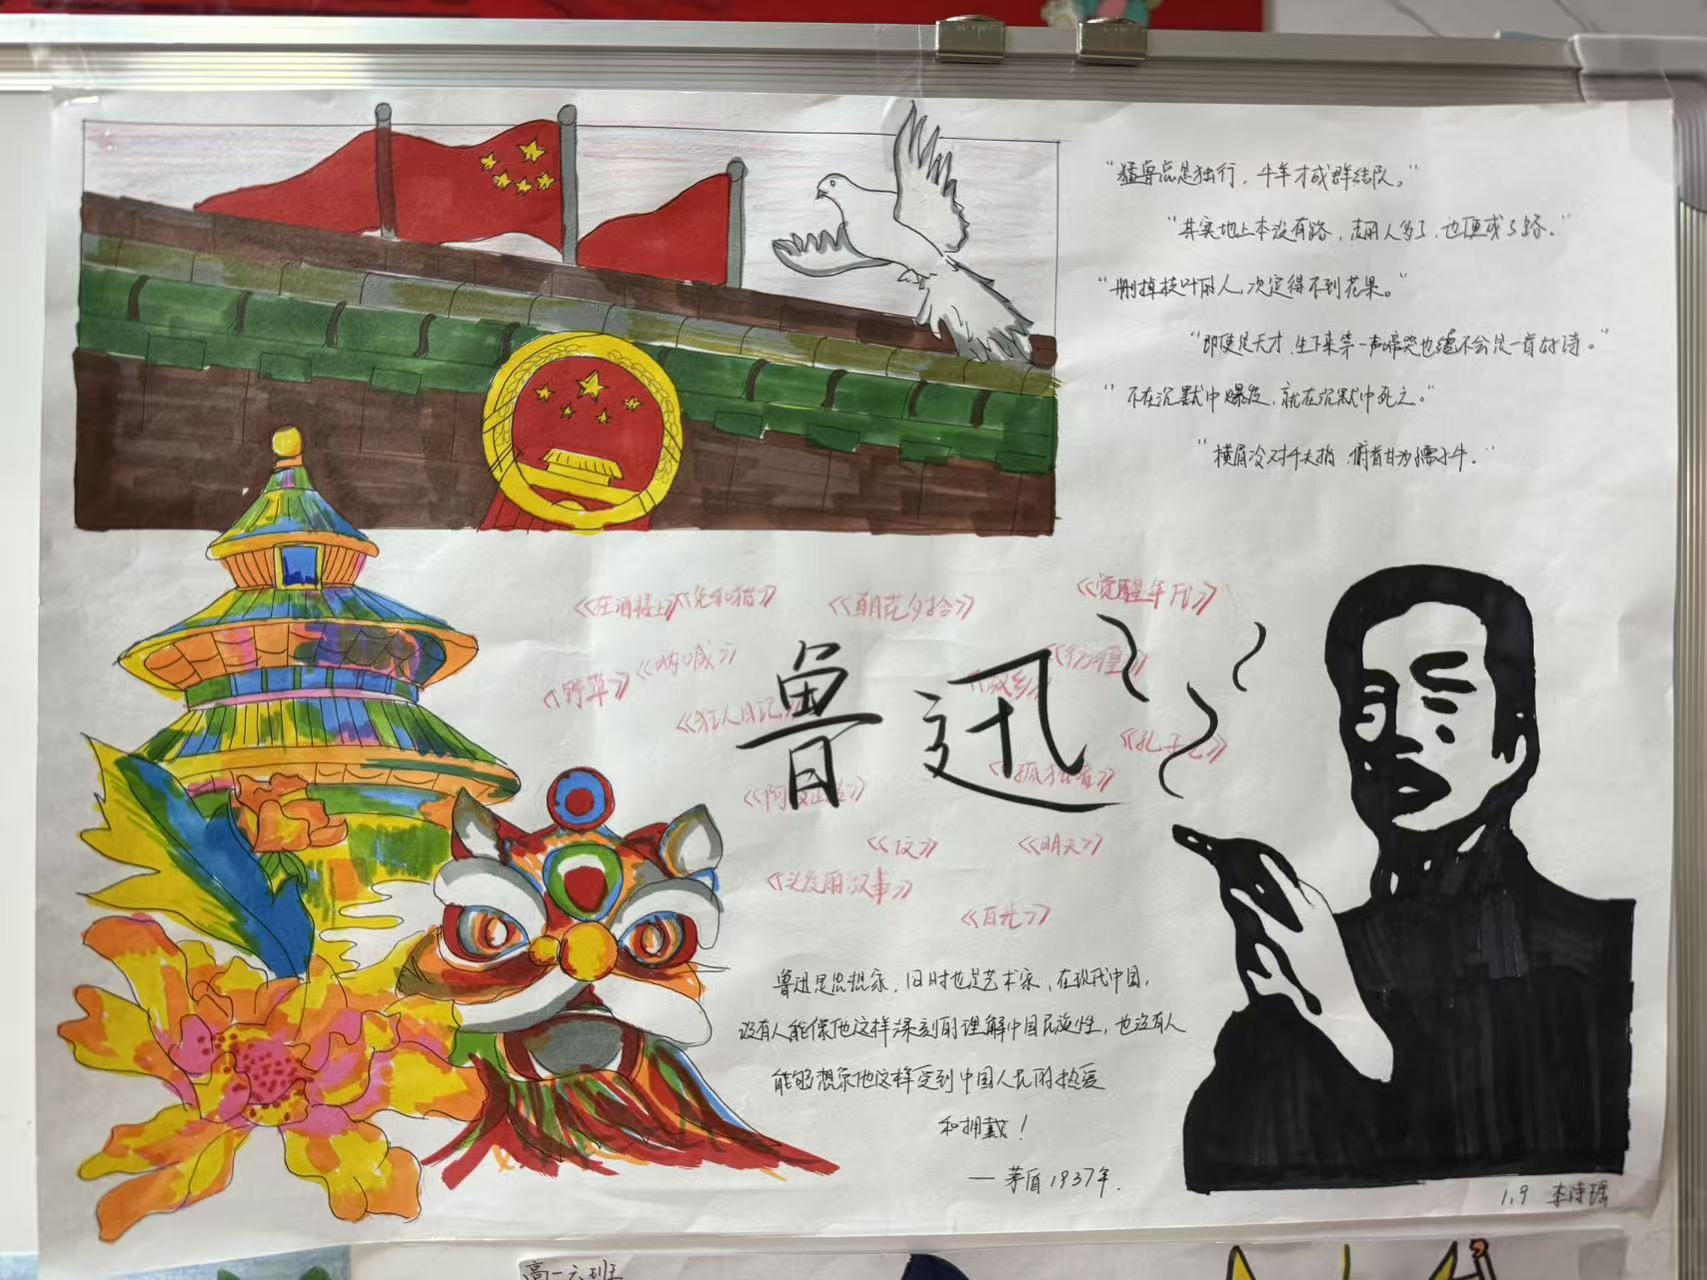 “猛兽总是独行，牛羊才成群结队。”
“其实地上本没有路，走的人多了，也便成了路。”
“删掉枝叶的人，决定得不到花果。”
“即使是天才，生下来第一声啼哭也绝不会是一首好诗。”
“不在沉默中爆发，就在沉默中死亡。”
“横眉冷对千夫指 俯首甘为孺子牛。”
《在酒楼上》《兔和猫》 《朝花夕拾》 《觉醒年代》
《野草》 《呐喊》 《故乡》 《彷徨》
《狂人日记》 《孔乙己》
鲁迅
《阿Q正传》 《孤独者》
《明天》
《头发的故事》
《白光》
鲁迅是思想家，同时也是艺术家，在现代中国，
没有人能像他这样深刻的理解中国民族性，也没有人
能够想象他这样受到中国人民的热爱
和拥戴！
— 茅盾1937年.
1.9 李诗瑶
高一六班